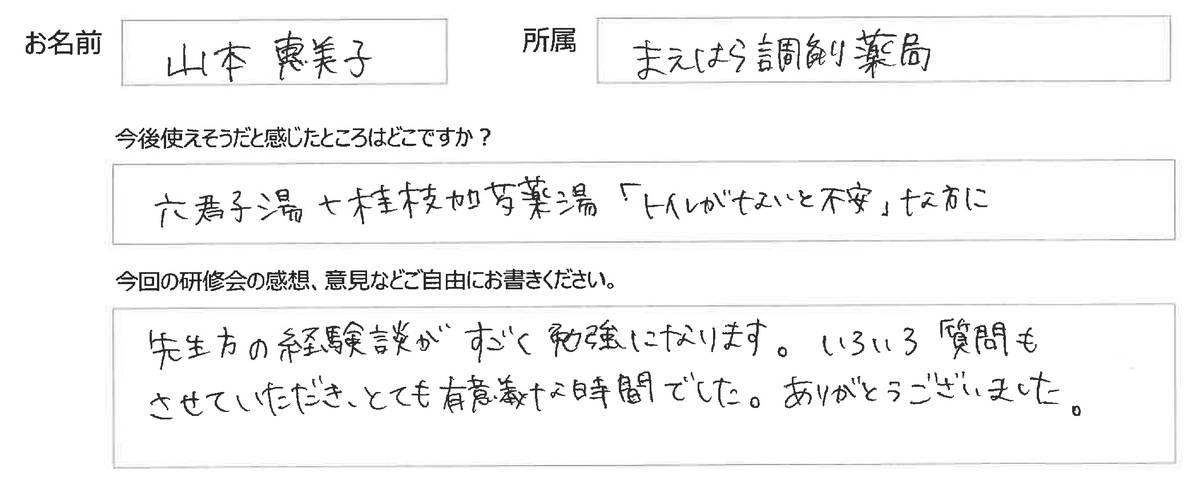 お名前 山本 恵美子 所属 まえはら調剤薬局
今後使えそうだと感じたところはどこですか？
六君子湯+桂枝加芍薬湯「トイレがないと不安」な方に
今回の研修会の感想、意見などご自由にお書きください。
先生方の経験談がすごく勉強になります。いろいろ質問も
させていただき、とても有意義な時間でした。ありがとうございました。